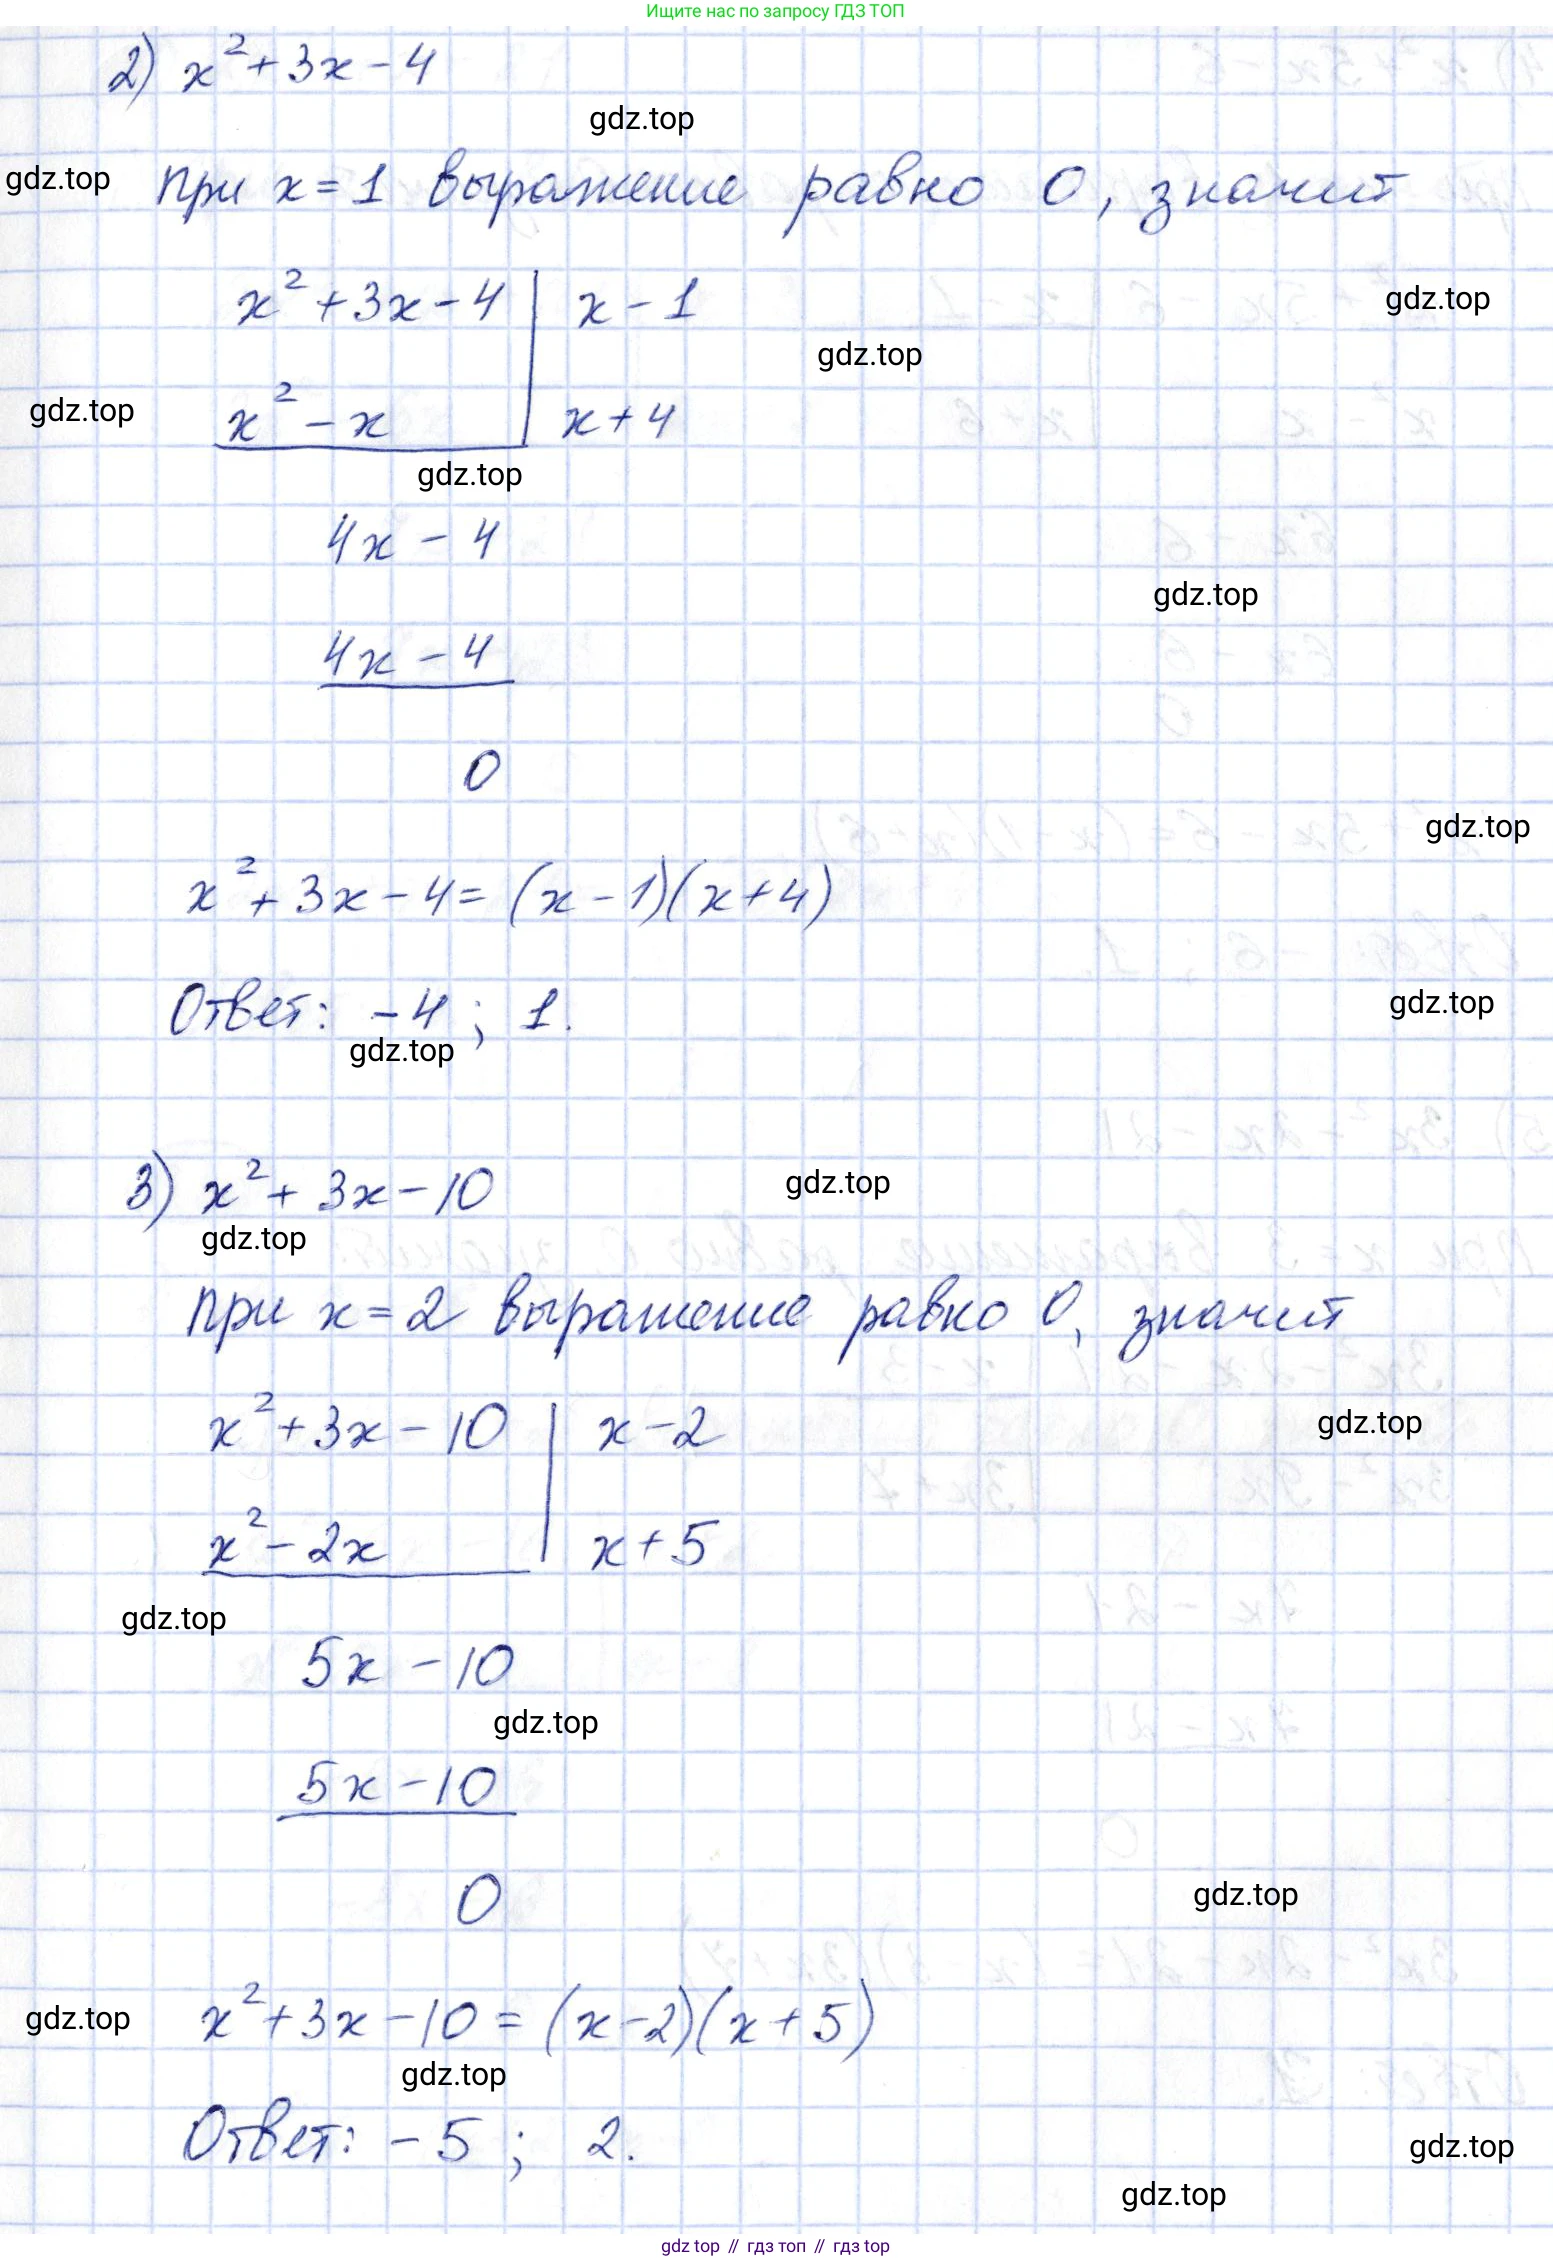 Ищите нас по запросу ГДЗ ТОП
2) x² + 3x - 4
gdz.top
gdz.top
при x = 1 выражение равно 0, значит
x² + 3x - 4 | x - 1
gdz.top
gdz.top
gdz.top
x² - x | x + 4
gdz.top
4x - 4
gdz.top
4x - 4
0
gdz.top
x² + 3x - 4 = (x - 1)(x + 4)
Ответ: -4 ; 1.
gdz.top
gdz.top
3) x² + 3x - 10
gdz.top
gdz.top
при x = 2 выражение равно 0, значит
x² + 3x - 10 | x - 2
gdz.top
x² - 2x | x + 5
gdz.top
5x - 10
gdz.top
5x - 10
0
gdz.top
gdz.top
x² + 3x - 10 = (x - 2)(x + 5)
gdz.top
Ответ: -5 ; 2.
gdz.top
gdz.top
gdz top // гдз топ // гдз top